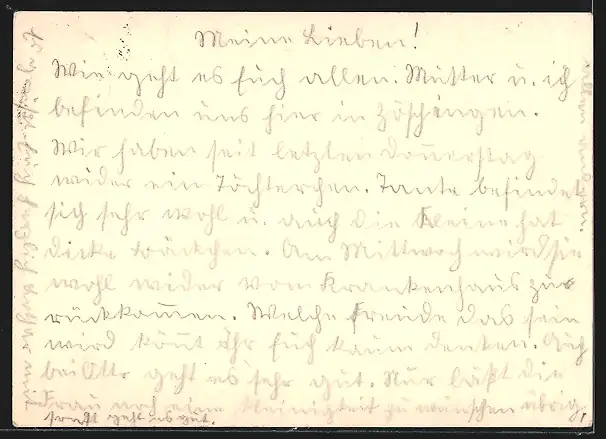 Meine Lieben!
Wie geht es Euch allen. Mutter u. ich
befinden uns hier in Zöschingen.
Wir haben seit letzten Donnerstag
wider ein Töchterchen. Tante befindet
sich sehr wohl u. auch die Kleine hat
dicke Bäckchen. Am Mittwoch wird sie
wohl wider vom Krankenhaus zu
rückkommen. Welche Freude das sein
wird könnt Ihr Euch kaum denken. Auch
bei Otto geht es sehr gut. Nur läßt die
Frau noch eine Kleinigkeit zu wünschen übrig,
sonst geht es gut.
Es grüßt Euch herzlich